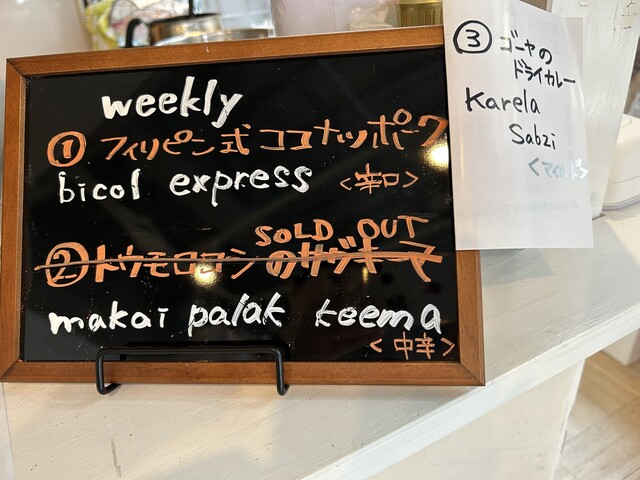 weekly
① フィリピン式ココナッツポーク
bicol express <辛口>
SOLD OUT
② トウモロコシのサグキーマ
makai palak keema
<中辛>
③ ゴーヤの
ドライカレー
Karela
Sabzi
<マイルド>